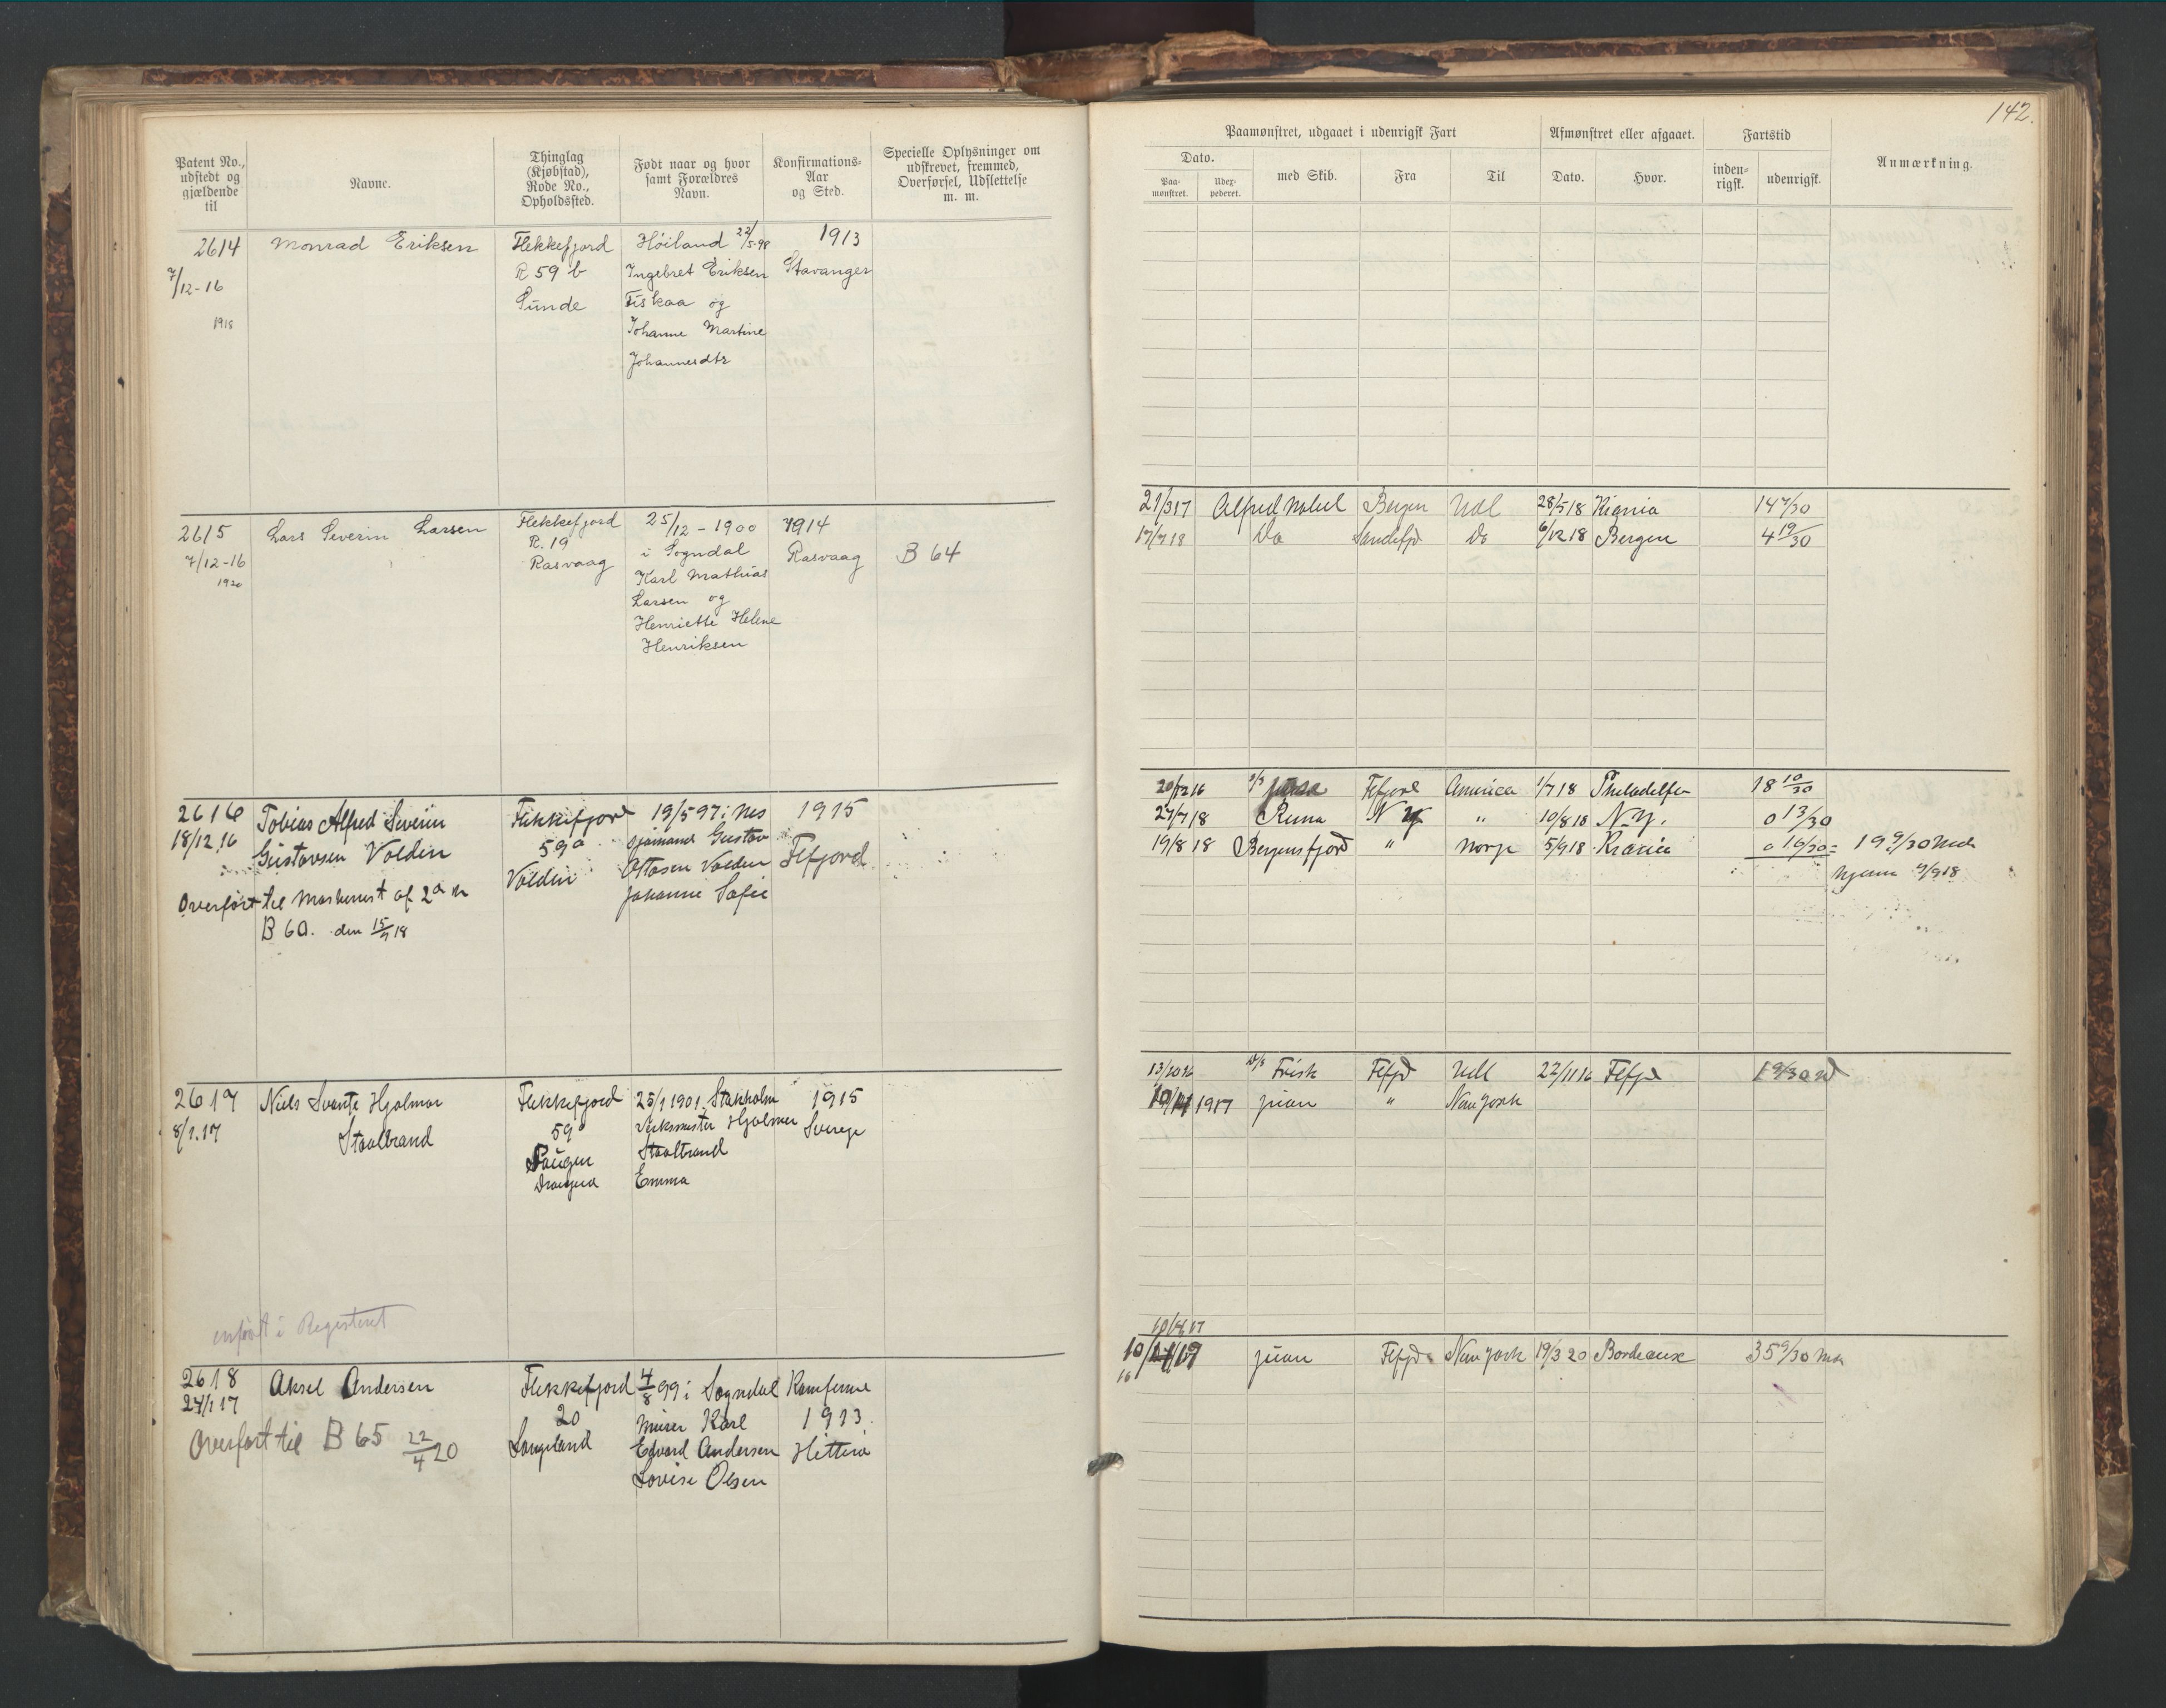 142.
Patent No., udstedt og gjældende til
Navne.
Thinglag (Kjøbstad), Rode No., Opholdssted.
Født naar og hvor samt Forældres Navn.
Konfirmations-Aar og Sted.
Specielle Oplysninger om udskrevet, fremmed, Overførsel, Udslettelse m. m.
Paamønstret, udgaaet i udenrigsk Fart
Afmønstret eller afgaaet.
Fartstid
Anmærkning.
Dato.
Paa-mønstret.
Udex-pederet.
med Skib.
Fra
Til
Dato.
Hvor.
inden-rigsk.
udenrigsk.
2614
7/12-16
1918
Monrad Eriksen
Flekkefjord
R 59 b
Sunde
Höiland 22/5-98
Ingebret Eriksen
Fiskaa og
Johanne Martine
Johannesdtr
1913
Stavanger
2615
7/12-16
1920
Lars Severin Larsen
Flekkefjord
R. 19
Rasvaag
25/12-1900
i Sogndal
Karl Mathias
Larsen og
Henriette Helene
Henriksen
1914
Rasvaag
B 64
21/3 17 Alfred Nobel Bergen Udl 28/5 18 Kr̄ania 14 7/30
17/7 18 Do Sandefjd Do 6/12 18 Bergen 4 19/30
2616
18/12.16
Tobias Alfred Severin
Gustavsen Volden
Overført til Maskinist af 2den
B 60. den 15/7 18
Flekkefjord
59a
Volden
19/5 97 i Nes
Sjömand Gustav
Ottosen Volden
Johanne Sofie
1915
Fefjord
20/12 16 Fefjord America 1/7 18 Philadelfia 18 10/30
27/7 18 Runa N Y " 10/8 18 N.Y. 0 13/30
19/8 18 Bergensfjord " Norge 5/9 18 Krania 0 16/30 = 19 9/30 Mdr
hjemme 9/9 18
2617
8/1.17
Niels Svante Hjalmar
Staalbrand
Flekkefjord
59a
25/1 1901. Stokholm
Verksmester Hjalmer
Staalbrand
Emma
1915
Sverige
D/S Frisk Fefjd Udl 22/11 16 Fefjd
1917 Juan " New York
enført i Registeret
2618
24/1 17
Aksel Andersen
Overført til B 65 22/4 20
Flekkefjord
20
Langeland
4/8 99 i Sogndal
Murer Karl
Edvard Andersen
Lovise Olsen
1913.
Hitterø
10/4 17
Juan Fefjd New York 19/3 20 Bordeaux 35 9/30 Mdr